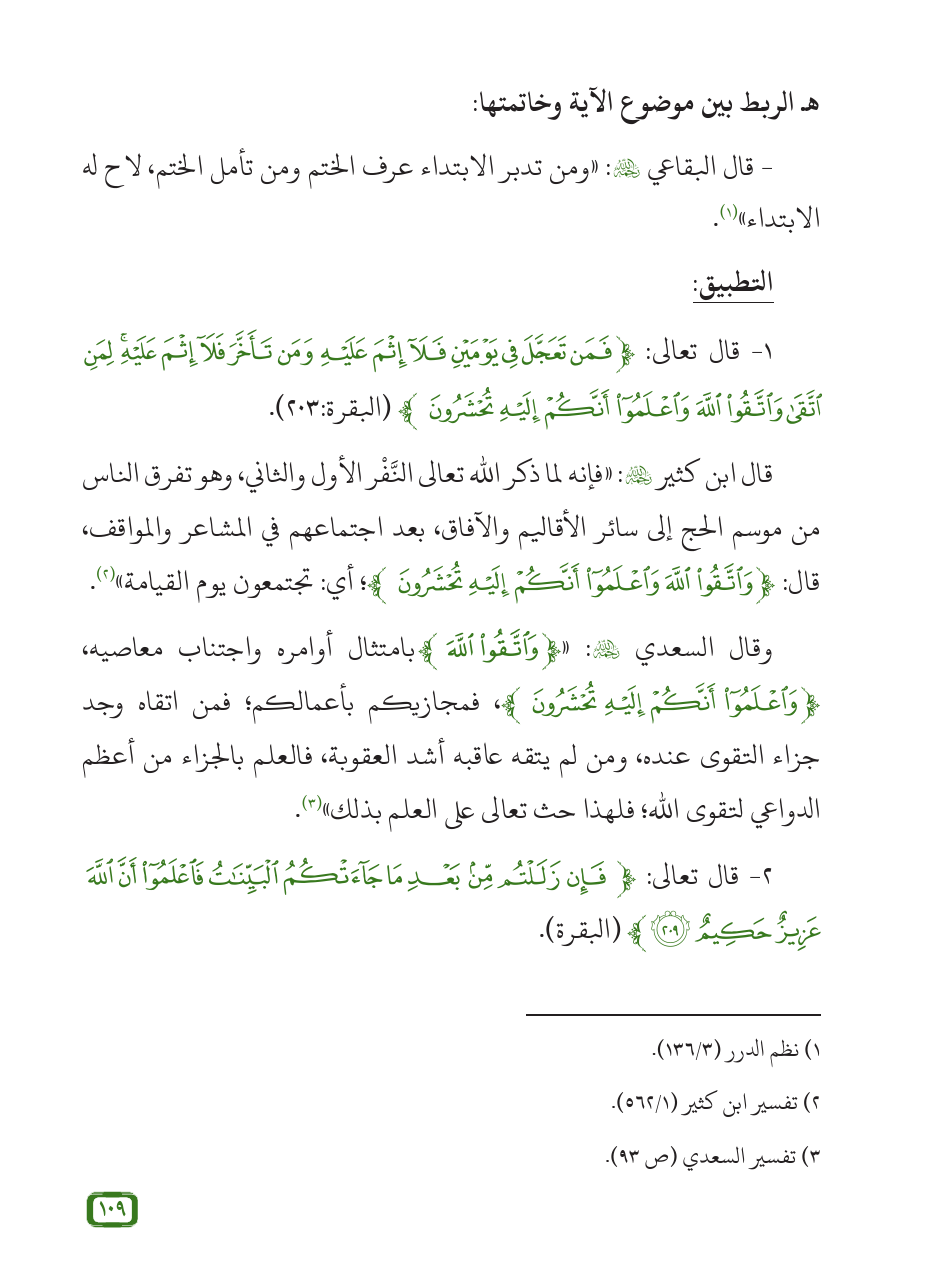 هـ الربط بين موضوع الآية وخاتمتها:
- قال البقاعي ﵀: «ومن تدبر الابتداء عرف الختم ومن تأمل الختم، لاح له
الابتداء»(١).
التطبيق:
١- قال تعالى: ﴿ فَمَن تَعَجَّلَ فِي يَوْمَيْنِ فَلَآ إِثْمَ عَلَيْهِ وَمَن تَأَخَّرَ فَلَآ إِثْمَ عَلَيْهِۚ لِمَنِ
ٱتَّقَىٰ وَٱتَّقُواْ ٱللَّهَ وَٱعْلَمُوٓاْ أَنَّكُمْ إِلَيْهِ تُحْشَرُونَ ﴾ (البقرة:٢٠٣).
قال ابن كثير ﵀: «فإنه لما ذكر الله تعالى النَّفْر الأول والثاني، وهو تفرق الناس
من موسم الحج إلى سائر الأقاليم والآفاق، بعد اجتماعهم في المشاعر والمواقف،
قال: ﴿ وَٱتَّقُواْ ٱللَّهَ وَٱعْلَمُوٓاْ أَنَّكُمْ إِلَيْهِ تُحْشَرُونَ ﴾؛ أي: تجتمعون يوم القيامة»(٢).
وقال السعدي ﵀: «﴿ وَٱتَّقُواْ ٱللَّهَ ﴾بامتثال أوامره واجتناب معاصيه،
﴿ وَٱعْلَمُوٓاْ أَنَّكُمْ إِلَيْهِ تُحْشَرُونَ ﴾، فمجازيكم بأعمالكم؛ فمن اتقاه وجد
جزاء التقوى عنده، ومن لم يتقه عاقبه أشد العقوبة، فالعلم بالجزاء من أعظم
الدواعي لتقوى الله؛ فلهذا حث تعالى على العلم بذلك»(٣).
٢- قال تعالى: ﴿ فَإِن زَلَلْتُم مِّنۢ بَعْدِ مَا جَآءَتْكُمُ ٱلْبَيِّنَٰتُ فَٱعْلَمُوٓاْ أَنَّ ٱللَّهَ
عَزِيزٌ حَكِيمٌ ٢٠٩ ﴾ (البقرة).
١) نظم الدرر (١٣٦/٣).
٢) تفسير ابن كثير (٥٦٢/١).
٣) تفسير السعدي (ص ٩٣).
١٠٩